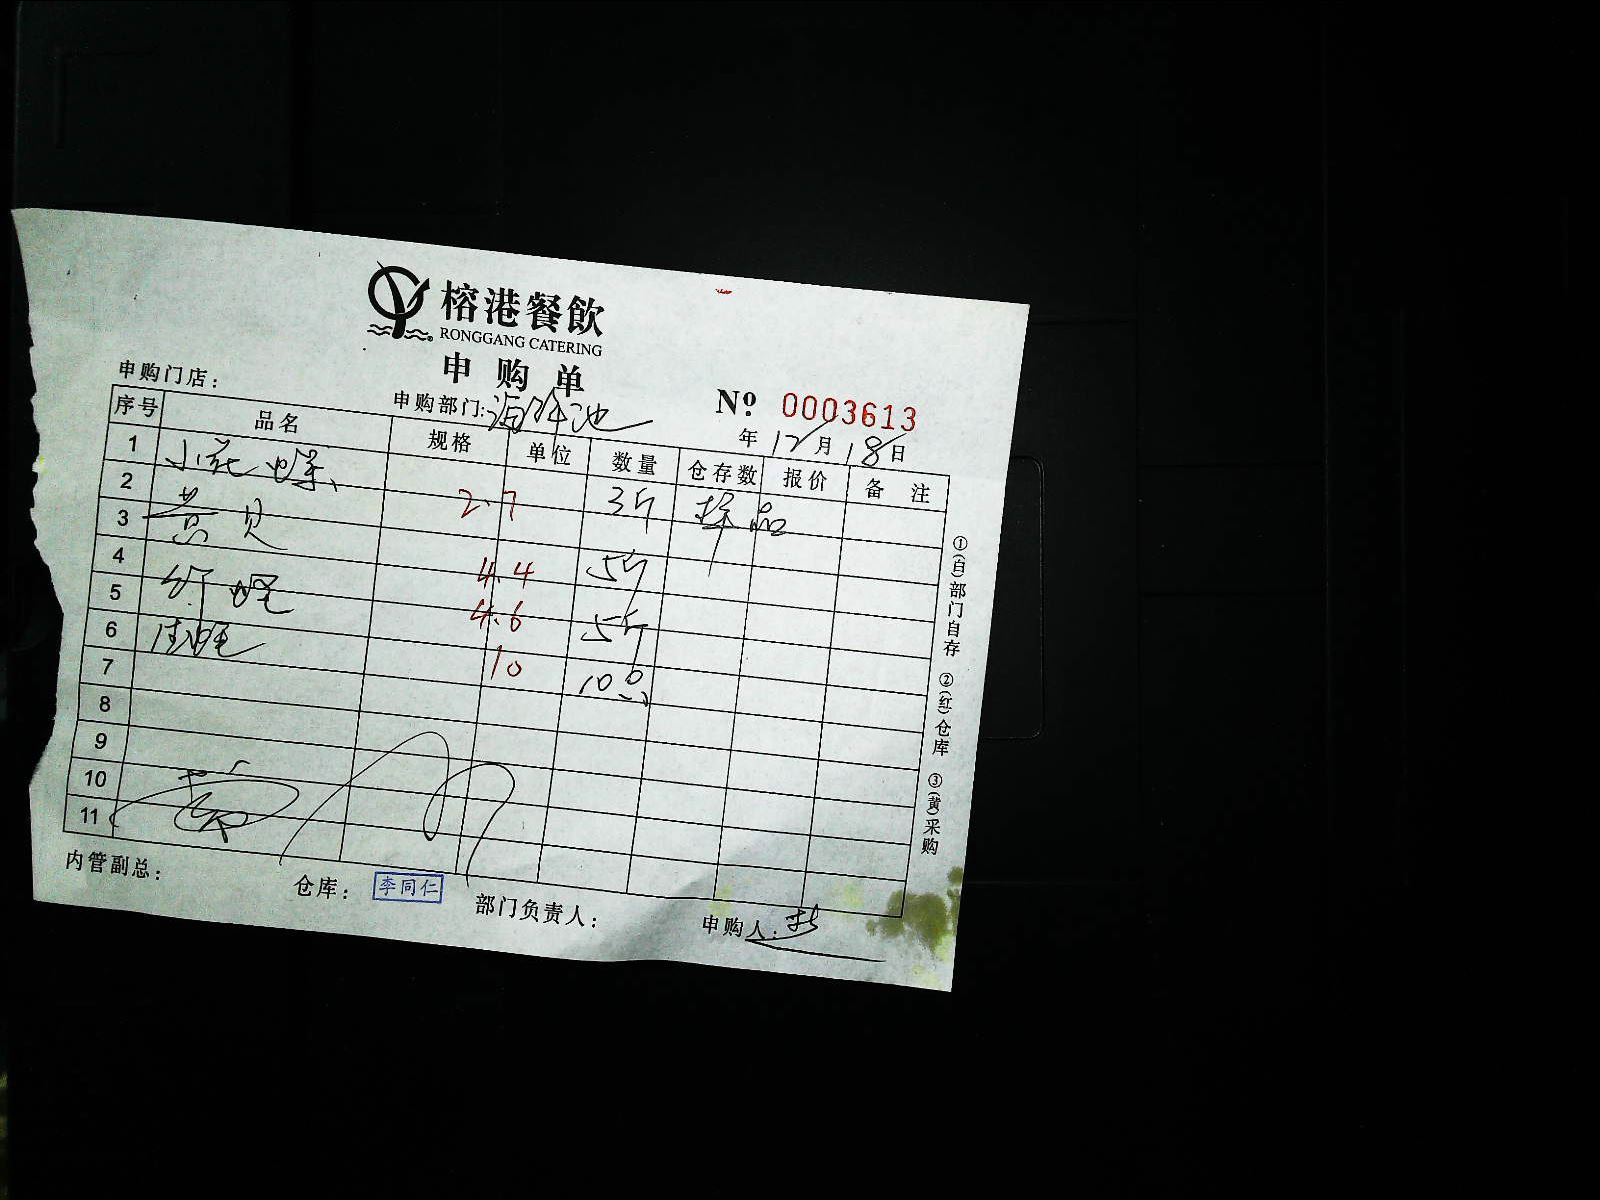 榕港餐飲
RONGGANG CATERING
申购单
申购门店：
申购部门：海鲜池
№ 0003613
年 12月 18日
序号 品名 规格 单位 数量 仓存数 报价 备注
1 小花螺
2 2.7 3斤 样品
3 黄贝
4 4.4 5斤
5 竹蛏 4.6 5斤
6
7 10 10只
8
9
10
11
内管副总：
仓库：李同仁
部门负责人：
申购人：
①(白)部门自存 ②(红)仓库 ③(黄)采购